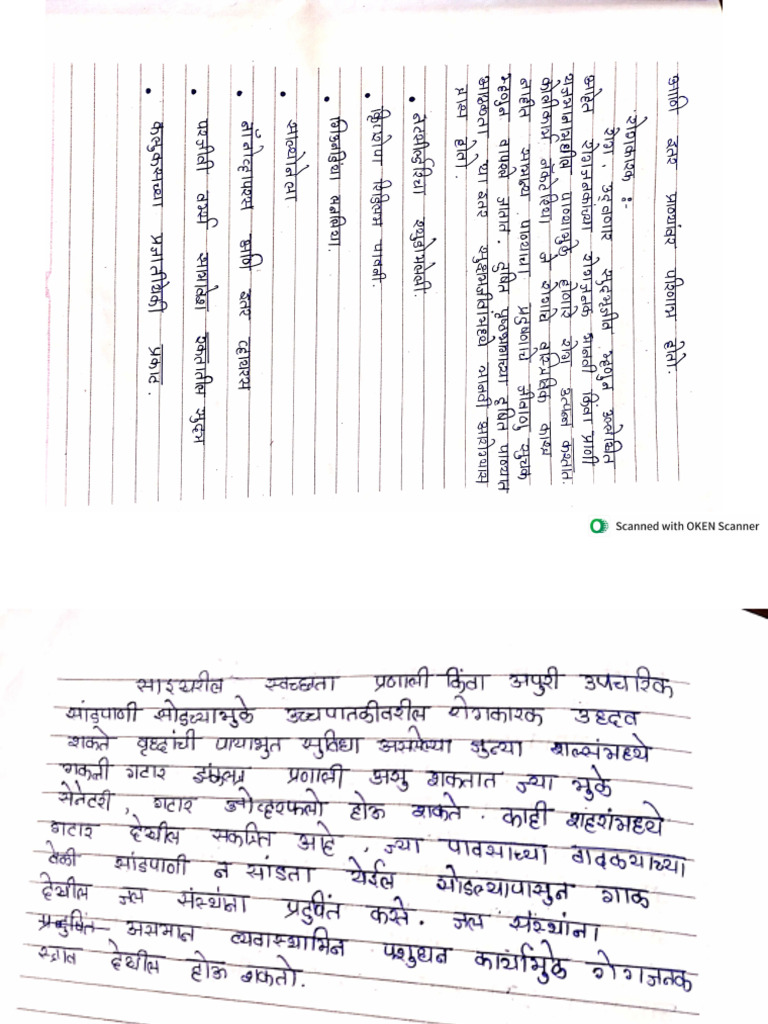 आणि इतर प्राण्यांवर परिणाम होतो.
रोगकारक :-
रोग, उद्भवणार सुक्ष्मजीव म्हणुन उल्लेखित
आहेत रोगजनकांच्या रोगजनक मानवी किंवा प्राणी
यजमानांमधील पाण्यामुळे होणारे रोग उत्पन्न करतात.
कोलीफार्म बॅक्टेरिया जे रोगाचे वास्तविक कारण
नाहीत सामान्य पाण्याचा प्रदुषणाचे जीवाणू सुचक
म्हणुन वापरले जातात. दुषित पृष्ठभागाच्या दुषित पाण्यात
आढळता या इतर सुक्ष्मजीवांमध्ये मानवी आरोग्यास
त्रास होतो.
• बेटस्मील्डेरिया श्युडोमलेली.
• क्रिप्टोस्पो रिडियम पावनी.
• गिअर्डिया लॅम्बलिया.
• साल्मोनेला
• नॉरोव्हायरस आणि इतर व्हायरस
• परजीवी वर्म्स समावेश प्रकारातील सुक्ष्म
• कलुकसच्या प्रजातींपैकी प्रकार.
Scanned with OKEN Scanner
साइटवरील स्वच्छता प्रणाली किंवा अपुरी उपचारिक
सांडपाणी सोडल्यामुळे उच्चपातळीवरील रोगकारक उद्भव
शकते वृध्दांची पायाभुत सुविधा असलेल्या जुन्या शहरांमध्ये
गळती गटार प्रणाली असु शकतात ज्या मुळे
सेनेटरी, गटार ओव्हरफलो होऊ शकते. काही शहरांमध्ये
गटार देखील संकलित आहे, ज्या पावसाच्या वादळाच्या
वेळी सांडपाणी न सांडता येईल सोडल्यापासुन गाळ
देखील जल संस्थांना प्रदुषित करते. जल संस्थांना
प्रदुषित असमान व्यवास्थामिन पशुधन कार्यामुळे रोगजनक
स्त्राव देखील होऊ शकतो.